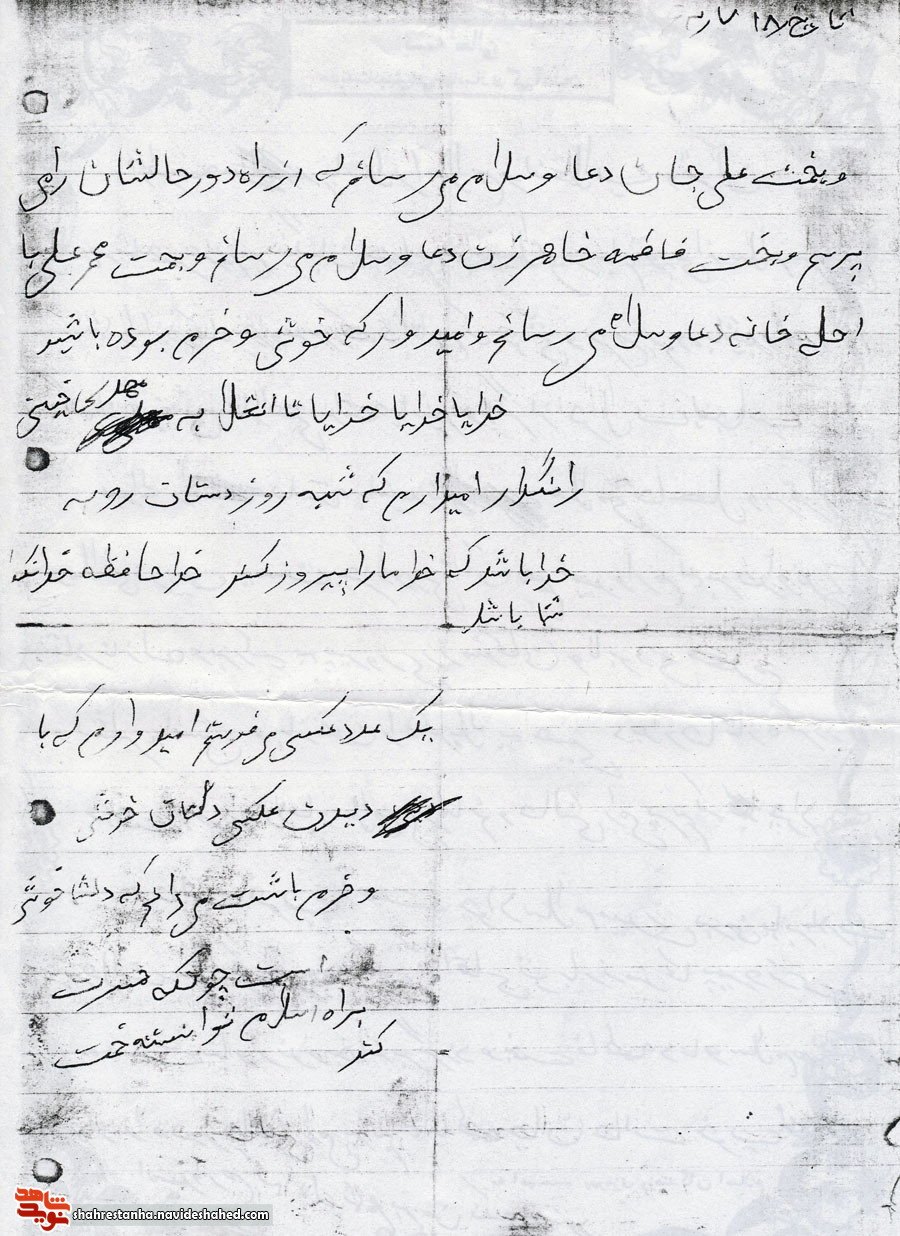 تاریخ ۱۸
وبخمت علی جان دعا وسلام می رسانم که از راه دور حالشان را می
پرسم وبخمت فاطمه خاهرزن دعا وسلام می رسانم وبخمت علی با
احلی خانه دعا وسلام می رسانم وامید وار که خوش وخرم بوده باشید
خدایا خدایا خدایا تا انقلاب مهدی خمینی
را نگدار امیدارم که شبه روز دستان رو به
خدا باشد که خدا مارا پیروز کند خدا حافظه خدا نگدا
شما باشد
یک عدد عکسی می فرستم امید وارم که با
دیدن عکسی دلتان خوش
وخرم باشت می دانم که دلشا خوش
است چونکه فرزندت
براه اسلام توانسته خمت
کند
نوید شاهد
shahrestanha.navideshahed.com